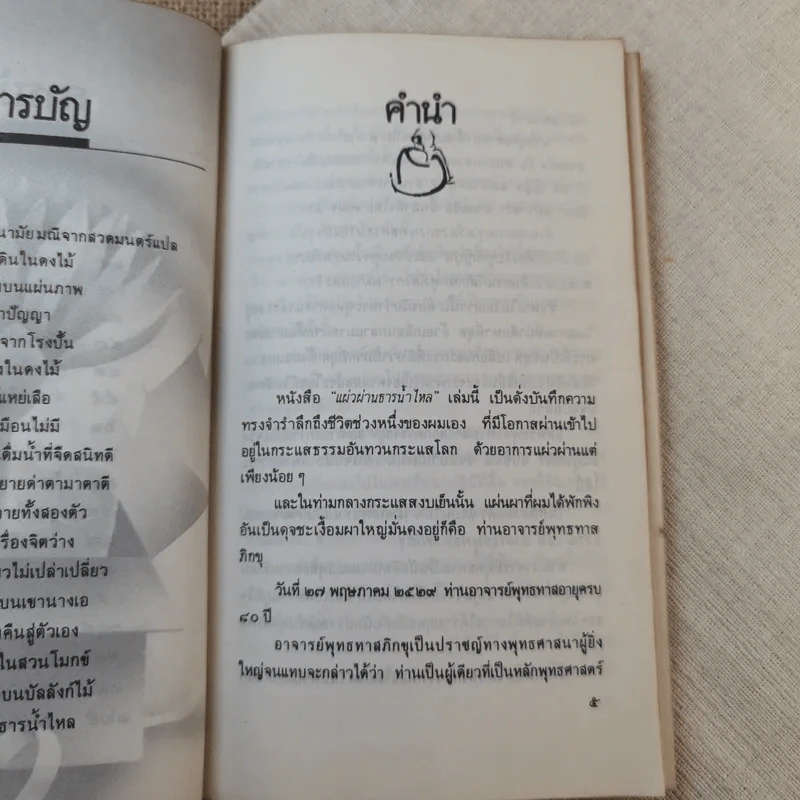 ารบัญ
นามัยมณีจากสวดมนตร์แปล
ดินในดงไม้
บนแผ่นภาพ
าปัญญา
จากโรงปั้น
งในดงไม้
แหย่เสือ
มือนไม่มี
ดื่มน้ำที่จืดสนิทดี
ยายด่าตามาตาดี
วายทั้งสองตัว
รื่องจิตว่าง
วไม่เปล่าเปลี่ยว
บนเขานางเอ
คืนสู่ตัวเอง
ในสวนโมกข์
บนบัลลังก์ไม้
ธารน้ำไหล
คำนำ
หนังสือ "แผ่วผ่านธารน้ำไหล" เล่มนี้ เป็นดั่งบันทึกความ
ทรงจำรำลึกถึงชีวิตช่วงหนึ่งของผมเอง ที่มีโอกาสผ่านเข้าไป
อยู่ในกระแสธรรมอันทวนกระแสโลก ด้วยอาการแผ่วผ่านแต่
เพียงน้อย ๆ
และในท่ามกลางกระแสสงบเย็นนั้น แผ่นผาที่ผมได้พักพิง
อันเป็นดุจชะเงื้อมผาใหญ่มั่นคงอยู่ก็คือ ท่านอาจารย์พุทธทาส
ภิกขุ
วันที่ ๒๗ พฤษภาคม ๒๕๒๙ ท่านอาจารย์พุทธทาสอายุครบ
๘๐ ปี
อาจารย์พุทธทาสภิกขุเป็นปราชญ์ทางพุทธศาสนาผู้ยิ่ง
ใหญ่จนแทบจะกล่าวได้ว่า ท่านเป็นผู้เดียวที่เป็นหลักพุทธศาสตร์
๕